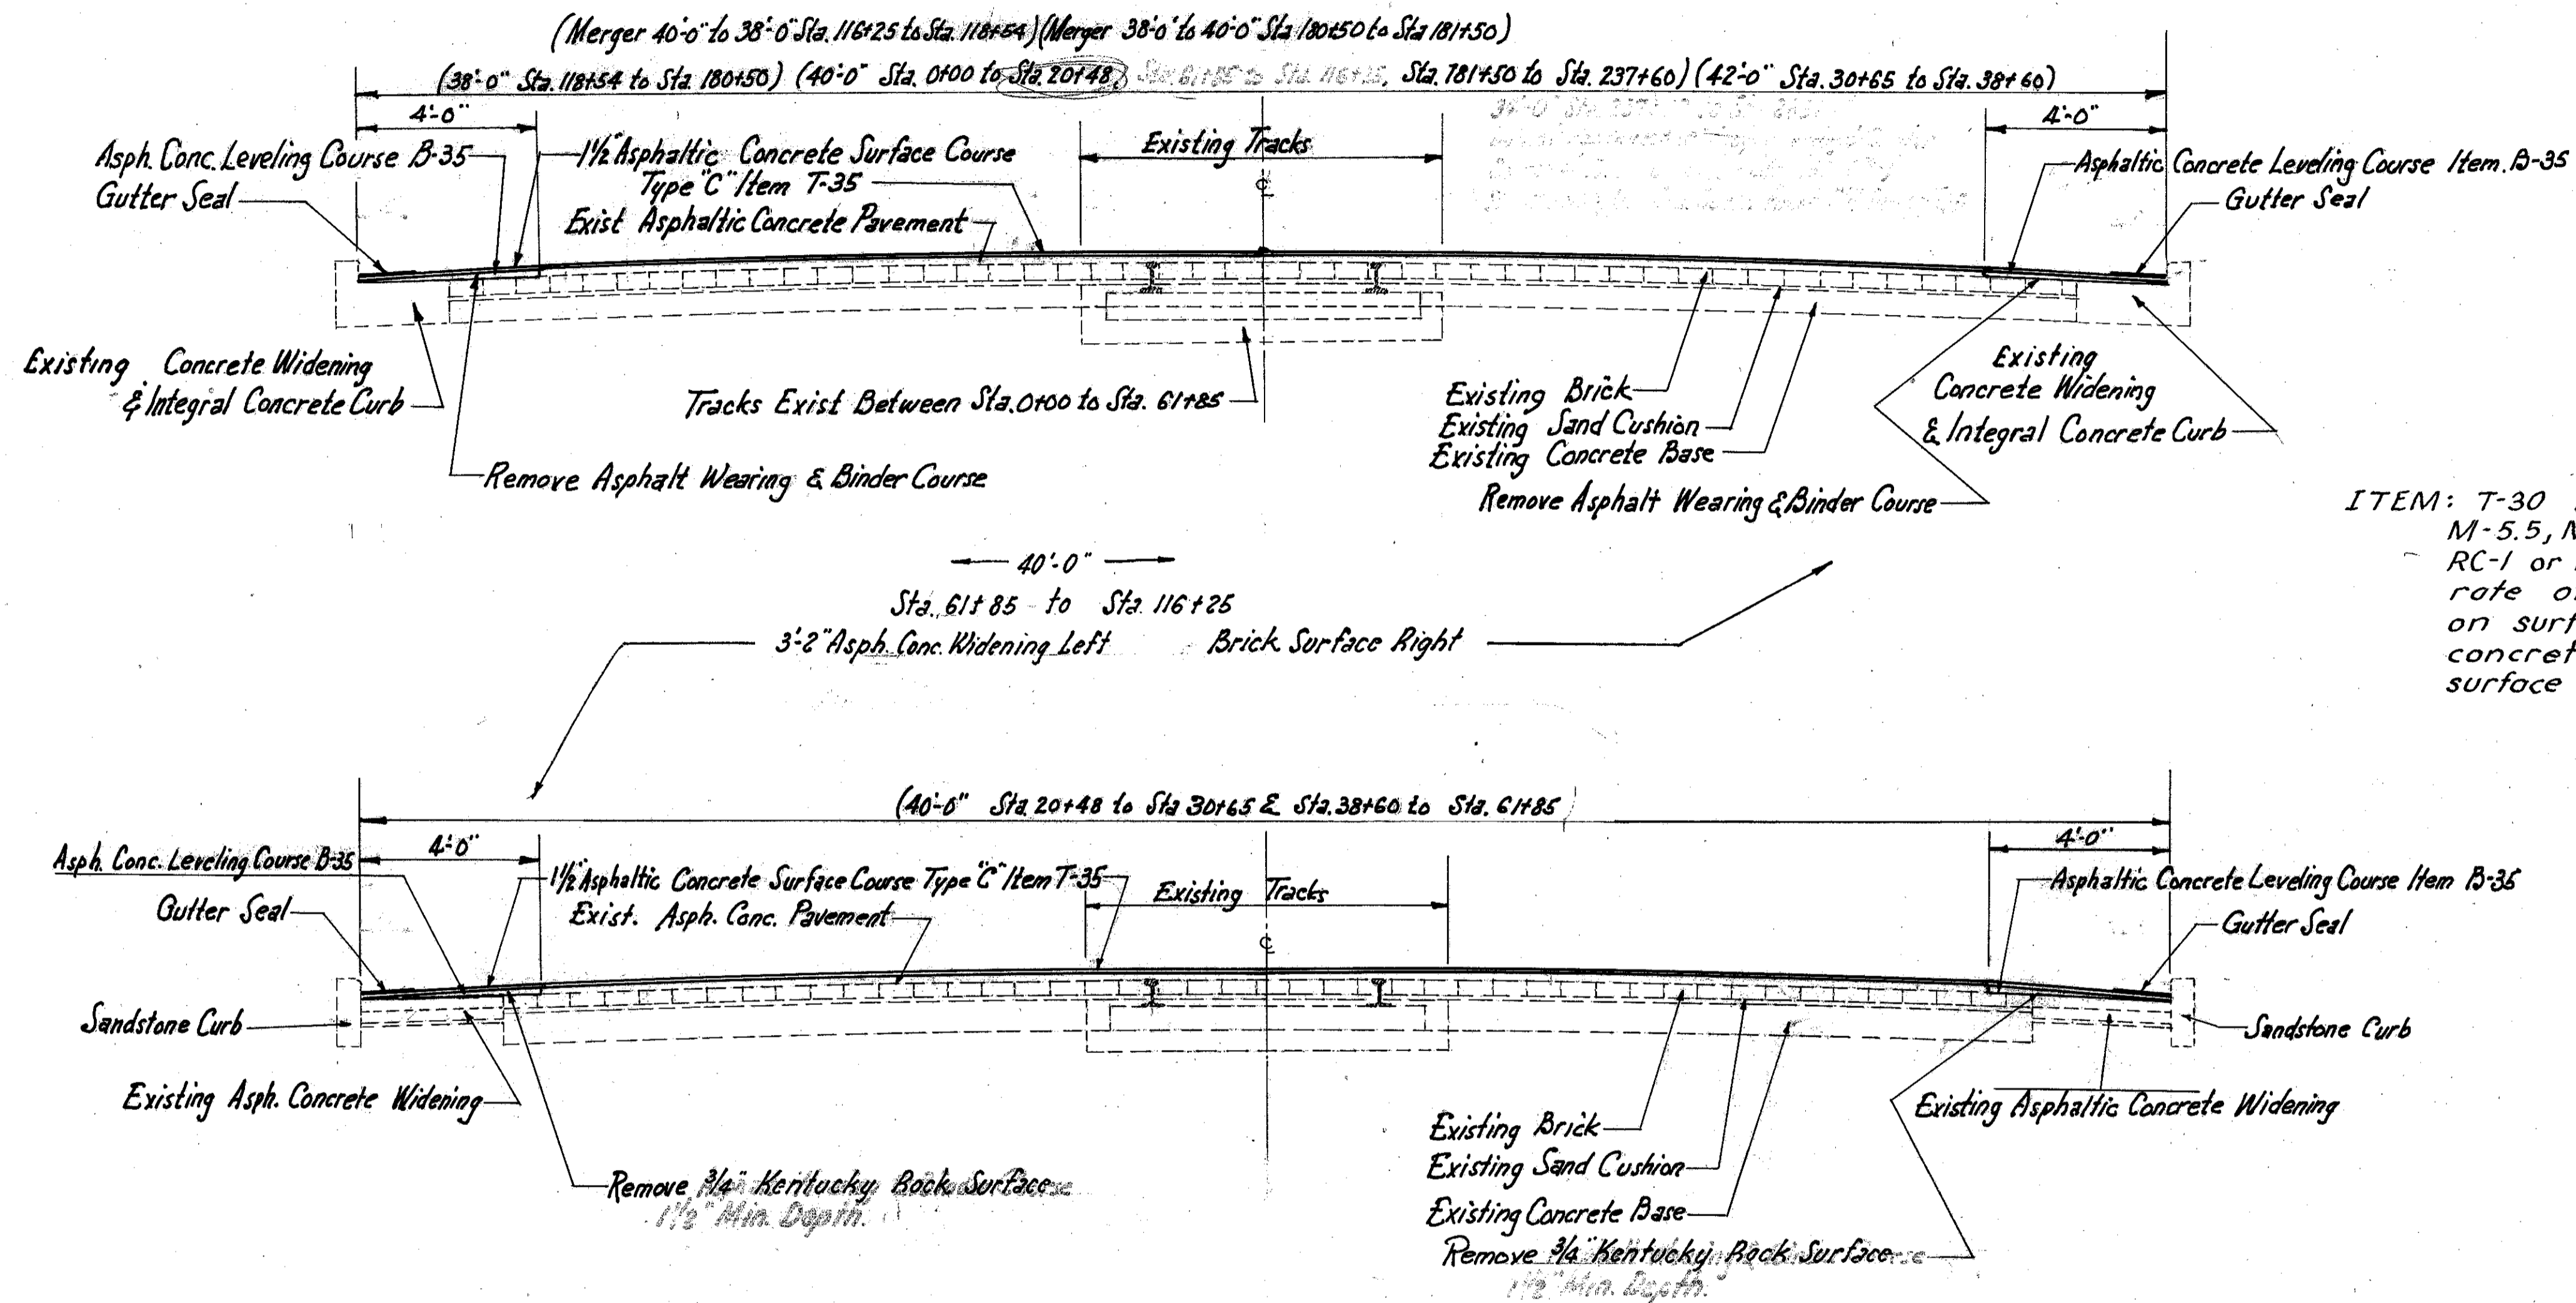 (Merger 40'-0" to 38'-0" Sta. 116+25 to Sta. 118+54) (Merger 38'-0" to 40'-0" Sta 180+50 to Sta 181+50)
(38'-0" Sta. 118+54 to Sta. 180+50) (40'-0" Sta. 0+00 to Sta. 20+48, Sta. 61+85 to Sta. 116+25, Sta. 781+50 to Sta. 237+60) (42'-0" Sta. 30+65 to Sta. 38+60)
4'-0"
4'-0"
Asph. Conc. Leveling Course B-35
Gutter Seal
1½ Asphaltic Concrete Surface Course
Type "C" Item T-35
Exist Asphaltic Concrete Pavement
Existing Tracks
℄
Asphaltic Concrete Leveling Course Item. B-35
Gutter Seal
Existing Concrete Widening
& Integral Concrete Curb
Tracks Exist Between Sta. 0+00 to Sta. 61+85
Existing Brick
Existing Sand Cushion
Existing Concrete Base
Existing
Concrete Widening
& Integral Concrete Curb
Remove Asphalt Wearing & Binder Course
Remove Asphalt Wearing & Binder Course
ITEM: T-30
M-5.5,
RC-1 or
rate
on surf
concret
surface
40'-0"
Sta. 61+85 to Sta. 116+25
3'-2" Asph. Conc. Widening Left Brick Surface Right
(40'-0" Sta. 20+48 to Sta 30+65 & Sta. 38+60 to Sta. 61+85)
4'-0"
4'-0"
Asph. Conc. Leveling Course B-35
Gutter Seal
1½ Asphaltic Concrete Surface Course Type "C" Item T-35
Exist. Asph. Conc. Pavement
Existing Tracks
℄
Asphaltic Concrete Leveling Course Item B-35
Gutter Seal
Sandstone Curb
Sandstone Curb
Existing Asph. Concrete Widening
Existing Asphaltic Concrete Widening
Existing Brick
Existing Sand Cushion
Existing Concrete Base
Remove ¾" Kentucky Rock Surface
1½" Min. Depth.
Remove ¾" Kentucky Rock Surface
1½" Min. Depth.